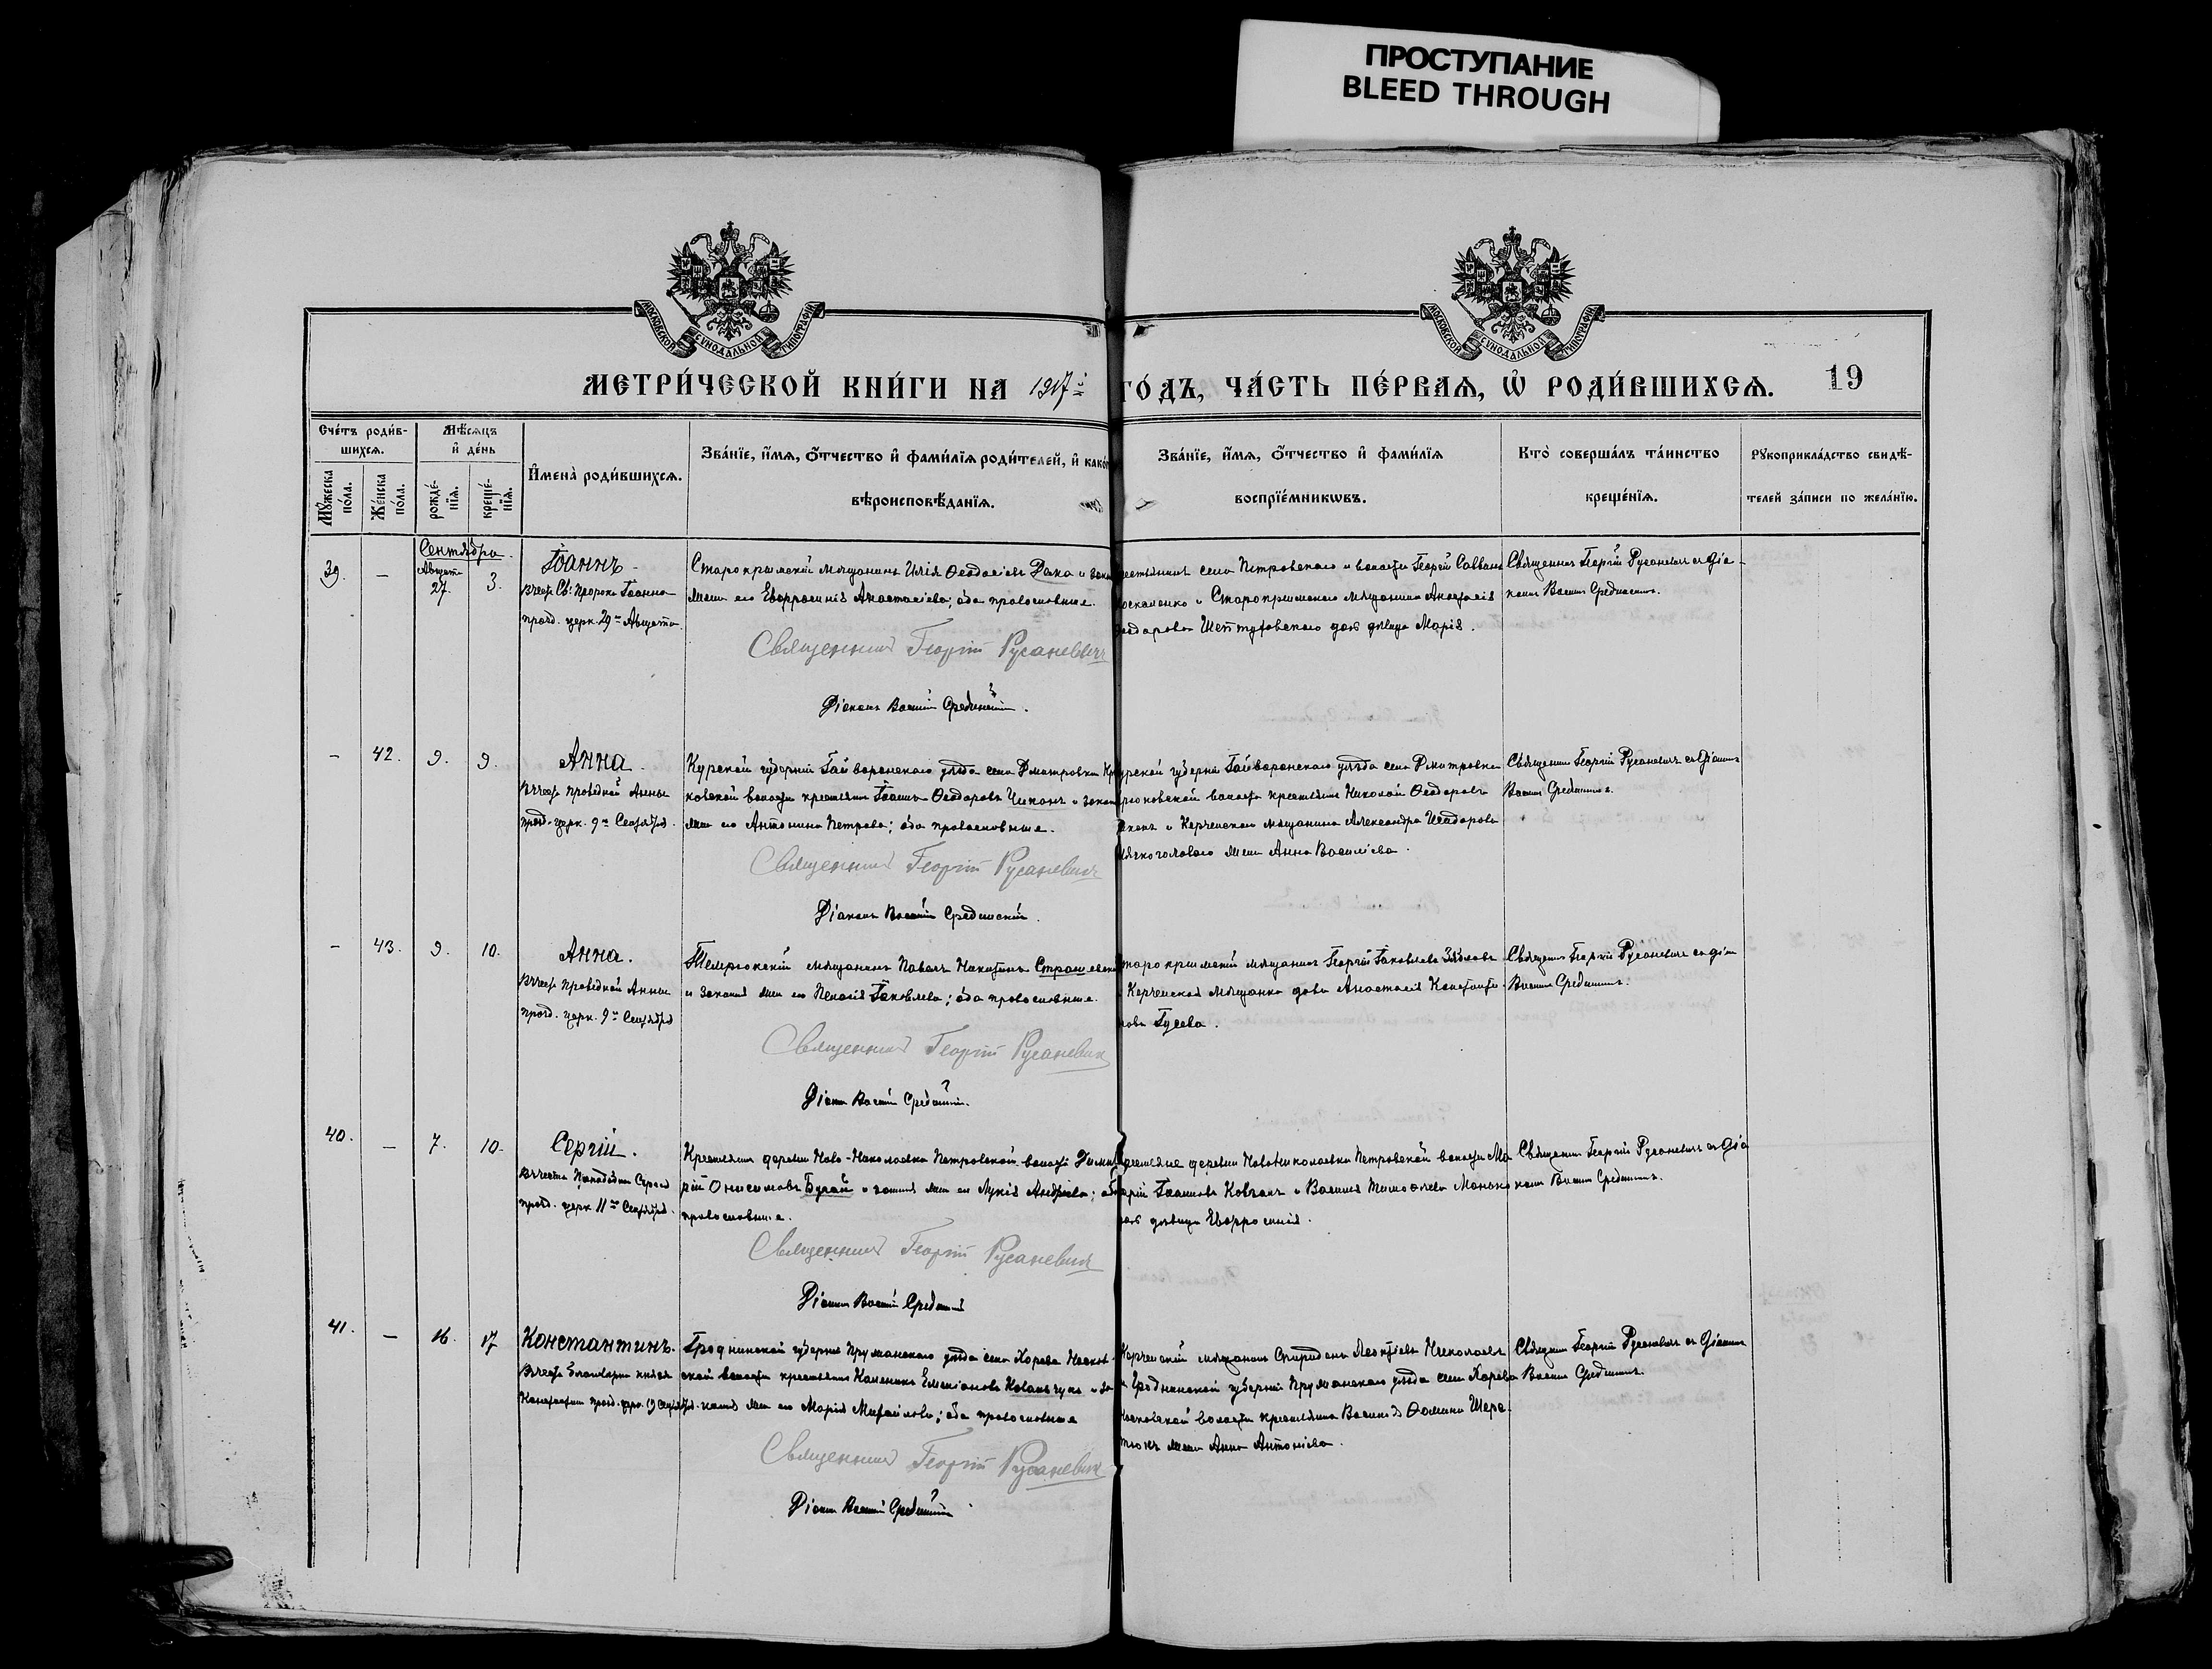 ПРОСТУПАНИЕ
BLEED THROUGH
МОСКОВСКОЙ СѴНОДАЛЬНОЙ ТИПОГРАФІИ
МОСКОВСКОЙ СѴНОДАЛЬНОЙ ТИПОГРАФІИ
МЕТРИ́ЧЕСКОЙ КНИ́ГИ НА 1917 й
ГО́ДЪ, ЧА́СТЬ ПЕ́РВАѦ, Ѡ҆ РОДИ́ВШИХСѦ.
19
Сче́тъ роди́в-
шихсѧ.
Мꙋ́жеска по́ла.
Же́нска по́ла.
Мѣ́сѧцъ
и҆ де́нь
рожде́-нїѧ.
креще́-нїѧ.
И҆мена̀ роди́вшихсѧ.
Зва́нїе, и҆́мѧ, ѻ҆́тчество и҆ фами́лїѧ роди́телей, и҆ како́
вѣроисповѣ́данїѧ.
Зва́нїе, и҆́мѧ, ѻ҆́тчество и҆ фами́лїѧ
воспрїе́мникѡвъ.
Кто̀ соверша́лъ та́инство
креще́нїѧ.
Рꙋкоприкла́дство свидѣ́-
телей за́писи по жела́нїю.
Сентября.
39. — Августа 27. 3. Іоаннъ
въ честь Св. Пророка Іоанна
празд. церк. 29го Августа
Старокрымскій мѣщанинъ Илія Ѳеодосіевъ Рака и закон
жена его Евфросинія Анастасіева; оба православные.
Священникъ Георгій Русаневичъ
Діаконъ Василій Срединскій.
села Петровскаго и волости Георгій Саввинъ
и Старокрымскаго мѣщанина Анастасія
дочь дѣвица Марія.
Священникъ Георгій Русаневичъ съ діа-
кономъ Василіемъ Срединскимъ.
— 42. 9. 9. Анна.
въ честь праведной Анны
празд. церк. 9го Сентября.
Курской губерніи Гайворонскаго уѣзда села Дмитровки
ковской волости крестьянинъ Іоаннъ Ѳеодоровъ Чиканъ и закон
жена его Антонина Петрова; оба православные.
Священникъ Георгій Русаневичъ
Діаконъ Василій Срединскій.
Курской губерніи Гайворонскаго уѣзда села Дмитровки
волости крестьянинъ Николай Ѳеодоровъ
и Керченскаго мѣщанина Александра Исидорова
жена Анна Василіева.
Священникъ Георгій Русаневичъ съ діакономъ
Василіемъ Срединскимъ.
— 43. 9. 10. Анна.
въ честь праведной Анны
празд. церк. 9го Сентября
Темрюкскій мѣщанинъ Павелъ Никитинъ
и законная жена его Пелагія Іаковлева; оба православные.
Священникъ Георгій Русаневичъ
Діаконъ Василій Срединскій.
Старокрымскій мѣщанинъ Георгій Іаковлевъ
Керченская мѣщанка дѣва Анастасія Константи-
нова Гусева.
Священникъ Георгій Русаневичъ съ діак.
Василіемъ Срединскимъ.
40. — 7. 10. Сергій.
въ честь Преподобнаго Сергія
празд. церк. 11го Сентября.
Крестьянинъ деревни Ново-Николаевки Петровской волости Дими
рій Онисимовъ Бугай и законная жена его Лукія Андреева; оба
православные.
Священникъ Георгій Русаневичъ
Діаконъ Василій Срединскій
Крестьяне деревни Новониколаевки Петровской волости
Іоанновъ и Василія Тимоѳеева
дочь дѣвица Евфросинія.
Священникъ Георгій Русаневичъ съ діа
кономъ Василіемъ Срединскимъ.
41. — 16. 17 Константинъ.
въ честь благовѣрн. князя
Константина празд. церк. 19 Сентября.
Гродненской губерніи Пружанскаго уѣзда села Хорева
ской волости крестьянинъ Емеліановъ Ковальчукъ и за-
конная жена его Марія Михайлова; оба православные
Священникъ Георгій Русаневичъ
Діаконъ Василій Срединскій
Керченскій мѣщанинъ Спиридонъ Леонтіевъ Николаевъ
и Гродненской губерніи Пружанскаго уѣзда села Хорева
волости крестьянина Василія Ѳомина Шере-
жена Анна Антоніева.
Священникъ Георгій Русаневичъ съ діакономъ
Василіемъ Срединскимъ.